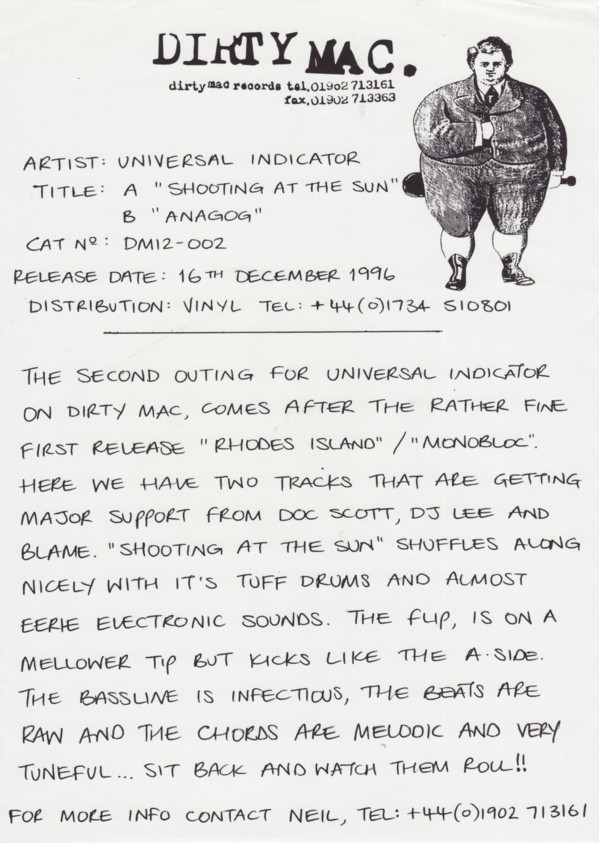 DIRTY MAC.
dirty mac records tel.01902 713161
fax.01902 713363
ARTIST: UNIVERSAL INDICATOR
TITLE: A "SHOOTING AT THE SUN"
B "ANAGOG"
CAT Nº: DM12-002
RELEASE DATE: 16TH DECEMBER 1996
DISTRIBUTION: VINYL TEL: +44(0)1734 510801
THE SECOND OUTING FOR UNIVERSAL INDICATOR
ON DIRTY MAC, COMES AFTER THE RATHER FINE
FIRST RELEASE "RHODES ISLAND" / "MONOBLOC".
HERE WE HAVE TWO TRACKS THAT ARE GETTING
MAJOR SUPPORT FROM DOC SCOTT, DJ LEE AND
BLAME. "SHOOTING AT THE SUN" SHUFFLES ALONG
NICELY WITH IT'S TUFF DRUMS AND ALMOST
EERIE ELECTRONIC SOUNDS. THE FLIP, IS ON A
MELLOWER TIP BUT KICKS LIKE THE A-SIDE.
THE BASSLINE IS INFECTIOUS, THE BEATS ARE
RAW AND THE CHORDS ARE MELODIC AND VERY
TUNEFUL... SIT BACK AND WATCH THEM ROLL!!
FOR MORE INFO CONTACT NEIL, TEL: +44(0)1902 713161